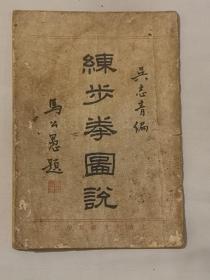 吳志青編
練步拳圖說
馬公愚題